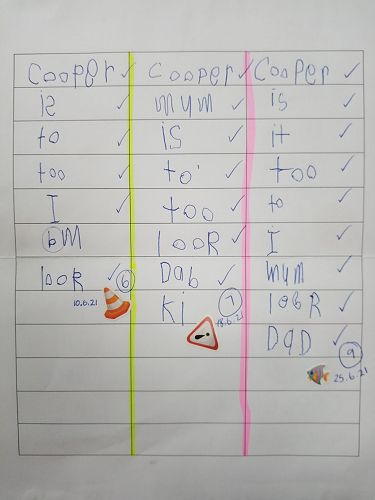 CooPer ✓
is ✓
to ✓
too ✓
I ✓
bM
looR ✓ 6
10.6.21
CooPer ✓
mum ✓
is ✓
to ✓
too ✓
looR ✓
Dab ✓
Ki 7
18.6.21
CooPer ✓
is ✓
it ✓
too ✓
to ✓
I ✓
mum ✓
looR ✓
DaD ✓
9
25.6.21